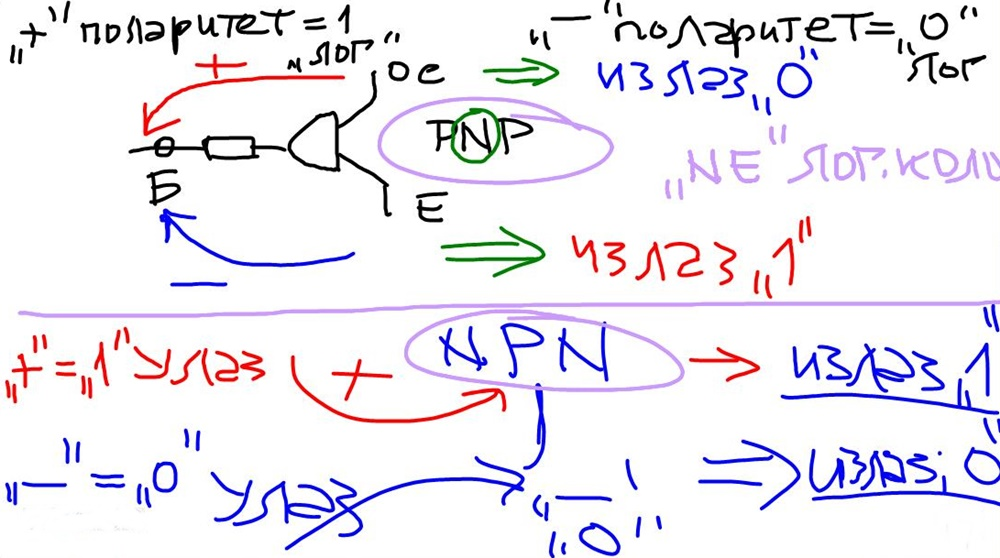 „+" поларитет = 1 „—" поларитет = „0"
„лог" лог
+ Oc ⇒ излаз „0"
PNP
Б „NE" лог. коло
E
— ⇒ излаз „1"
„+" = „1" улаз + NPN → излаз „1"
„—" = „0" улаз „—" ⇒ излаз „0"
„0"